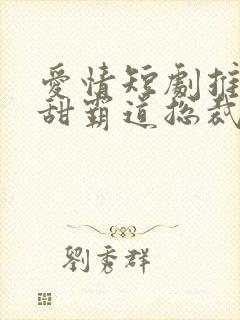 愛情短劇推
甜霸道总裁
劉秀群